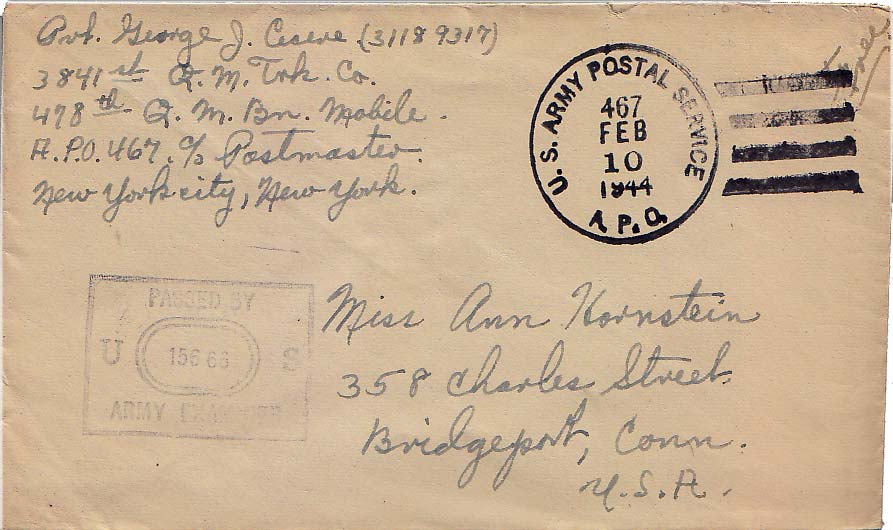 Pvt. George J. Cesere (31189317)
3841st Q. M. Trk. Co.
478th Q. M. Bn. Mobile.
A.P.O. 467. c/o Postmaster.
New York city, New York.
Free
U. S. ARMY POSTAL SERVICE
467
FEB
10
1944
A.P.O.
PASSED BY
U 15666 S
ARMY EXAMINER
Miss Ann Hornstein
358 Charles Street.
Bridgeport, Conn.
U.S.A.